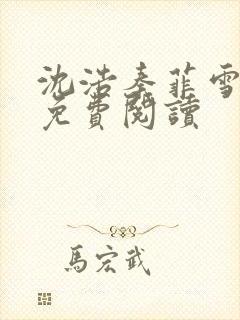 沈浩秦菲雪
免費閱讀
馬宏武